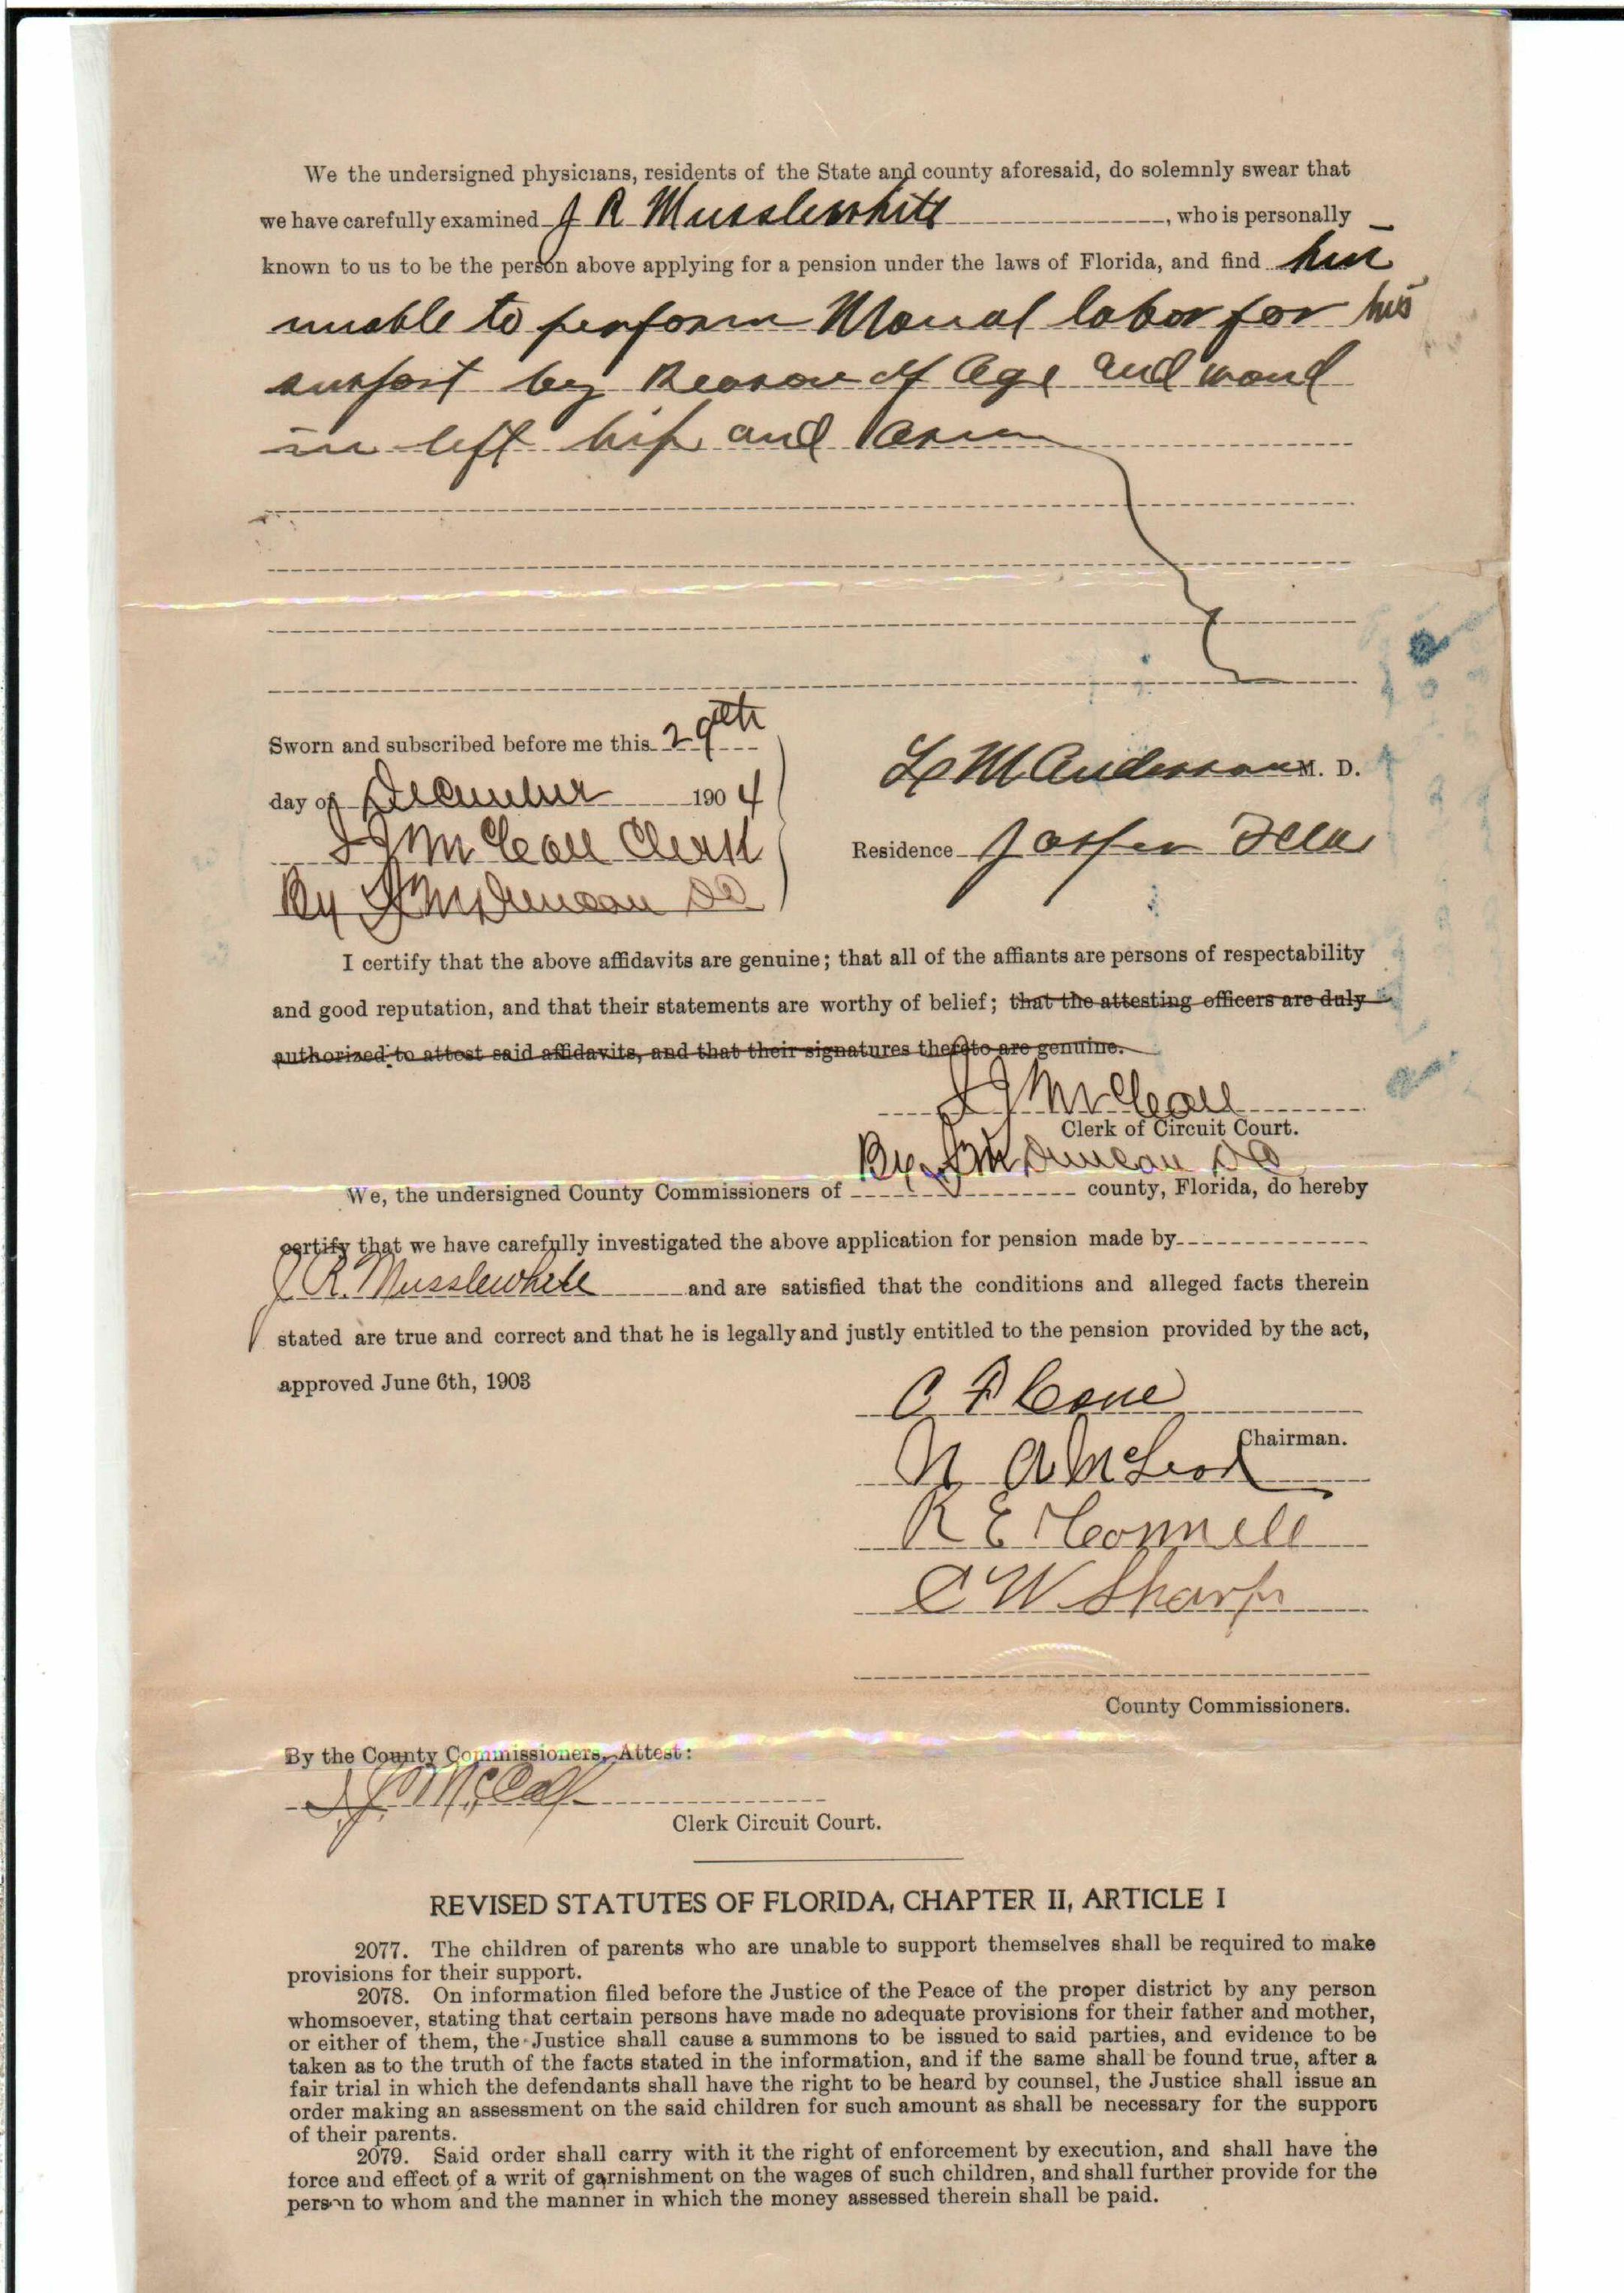 We the undersigned physicians, residents of the State and county aforesaid, do solemnly swear that
we have carefully examined J R Musslewhite, who is personally
known to us to be the person above applying for a pension under the laws of Florida, and find him
unable to perform Manal labor for his
support by Reason of Age and wond
in left hip and arm
Sworn and subscribed before me this 29th
day of December 1904
McCall Clerk
By Duncan DC
L M Anderson M. D.
Residence Jasper Fla
I certify that the above affidavits are genuine; that all of the affiants are persons of respectability
and good reputation, and that their statements are worthy of belief; that the attesting officers are duly
authorized to attest said affidavits, and that their signatures thereto are genuine.
McCall
Clerk of Circuit Court.
By Duncan DC
We, the undersigned County Commissioners of county, Florida, do hereby
certify that we have carefully investigated the above application for pension made by
J R. Musslewhite and are satisfied that the conditions and alleged facts therein
stated are true and correct and that he is legally and justly entitled to the pension provided by the act,
approved June 6th, 1903
C F Cone
Chairman.
N A McLeod
R E McConnell
C W Sharp
County Commissioners.
By the County Commissioners, Attest:
McCall
Clerk Circuit Court.
REVISED STATUTES OF FLORIDA, CHAPTER II, ARTICLE I
2077. The children of parents who are unable to support themselves shall be required to make
provisions for their support.
2078. On information filed before the Justice of the Peace of the proper district by any person
whomsoever, stating that certain persons have made no adequate provisions for their father and mother,
or either of them, the Justice shall cause a summons to be issued to said parties, and evidence to be
taken as to the truth of the facts stated in the information, and if the same shall be found true, after a
fair trial in which the defendants shall have the right to be heard by counsel, the Justice shall issue an
order making an assessment on the said children for such amount as shall be necessary for the support
of their parents.
2079. Said order shall carry with it the right of enforcement by execution, and shall have the
force and effect of a writ of garnishment on the wages of such children, and shall further provide for the
person to whom and the manner in which the money assessed therein shall be paid.